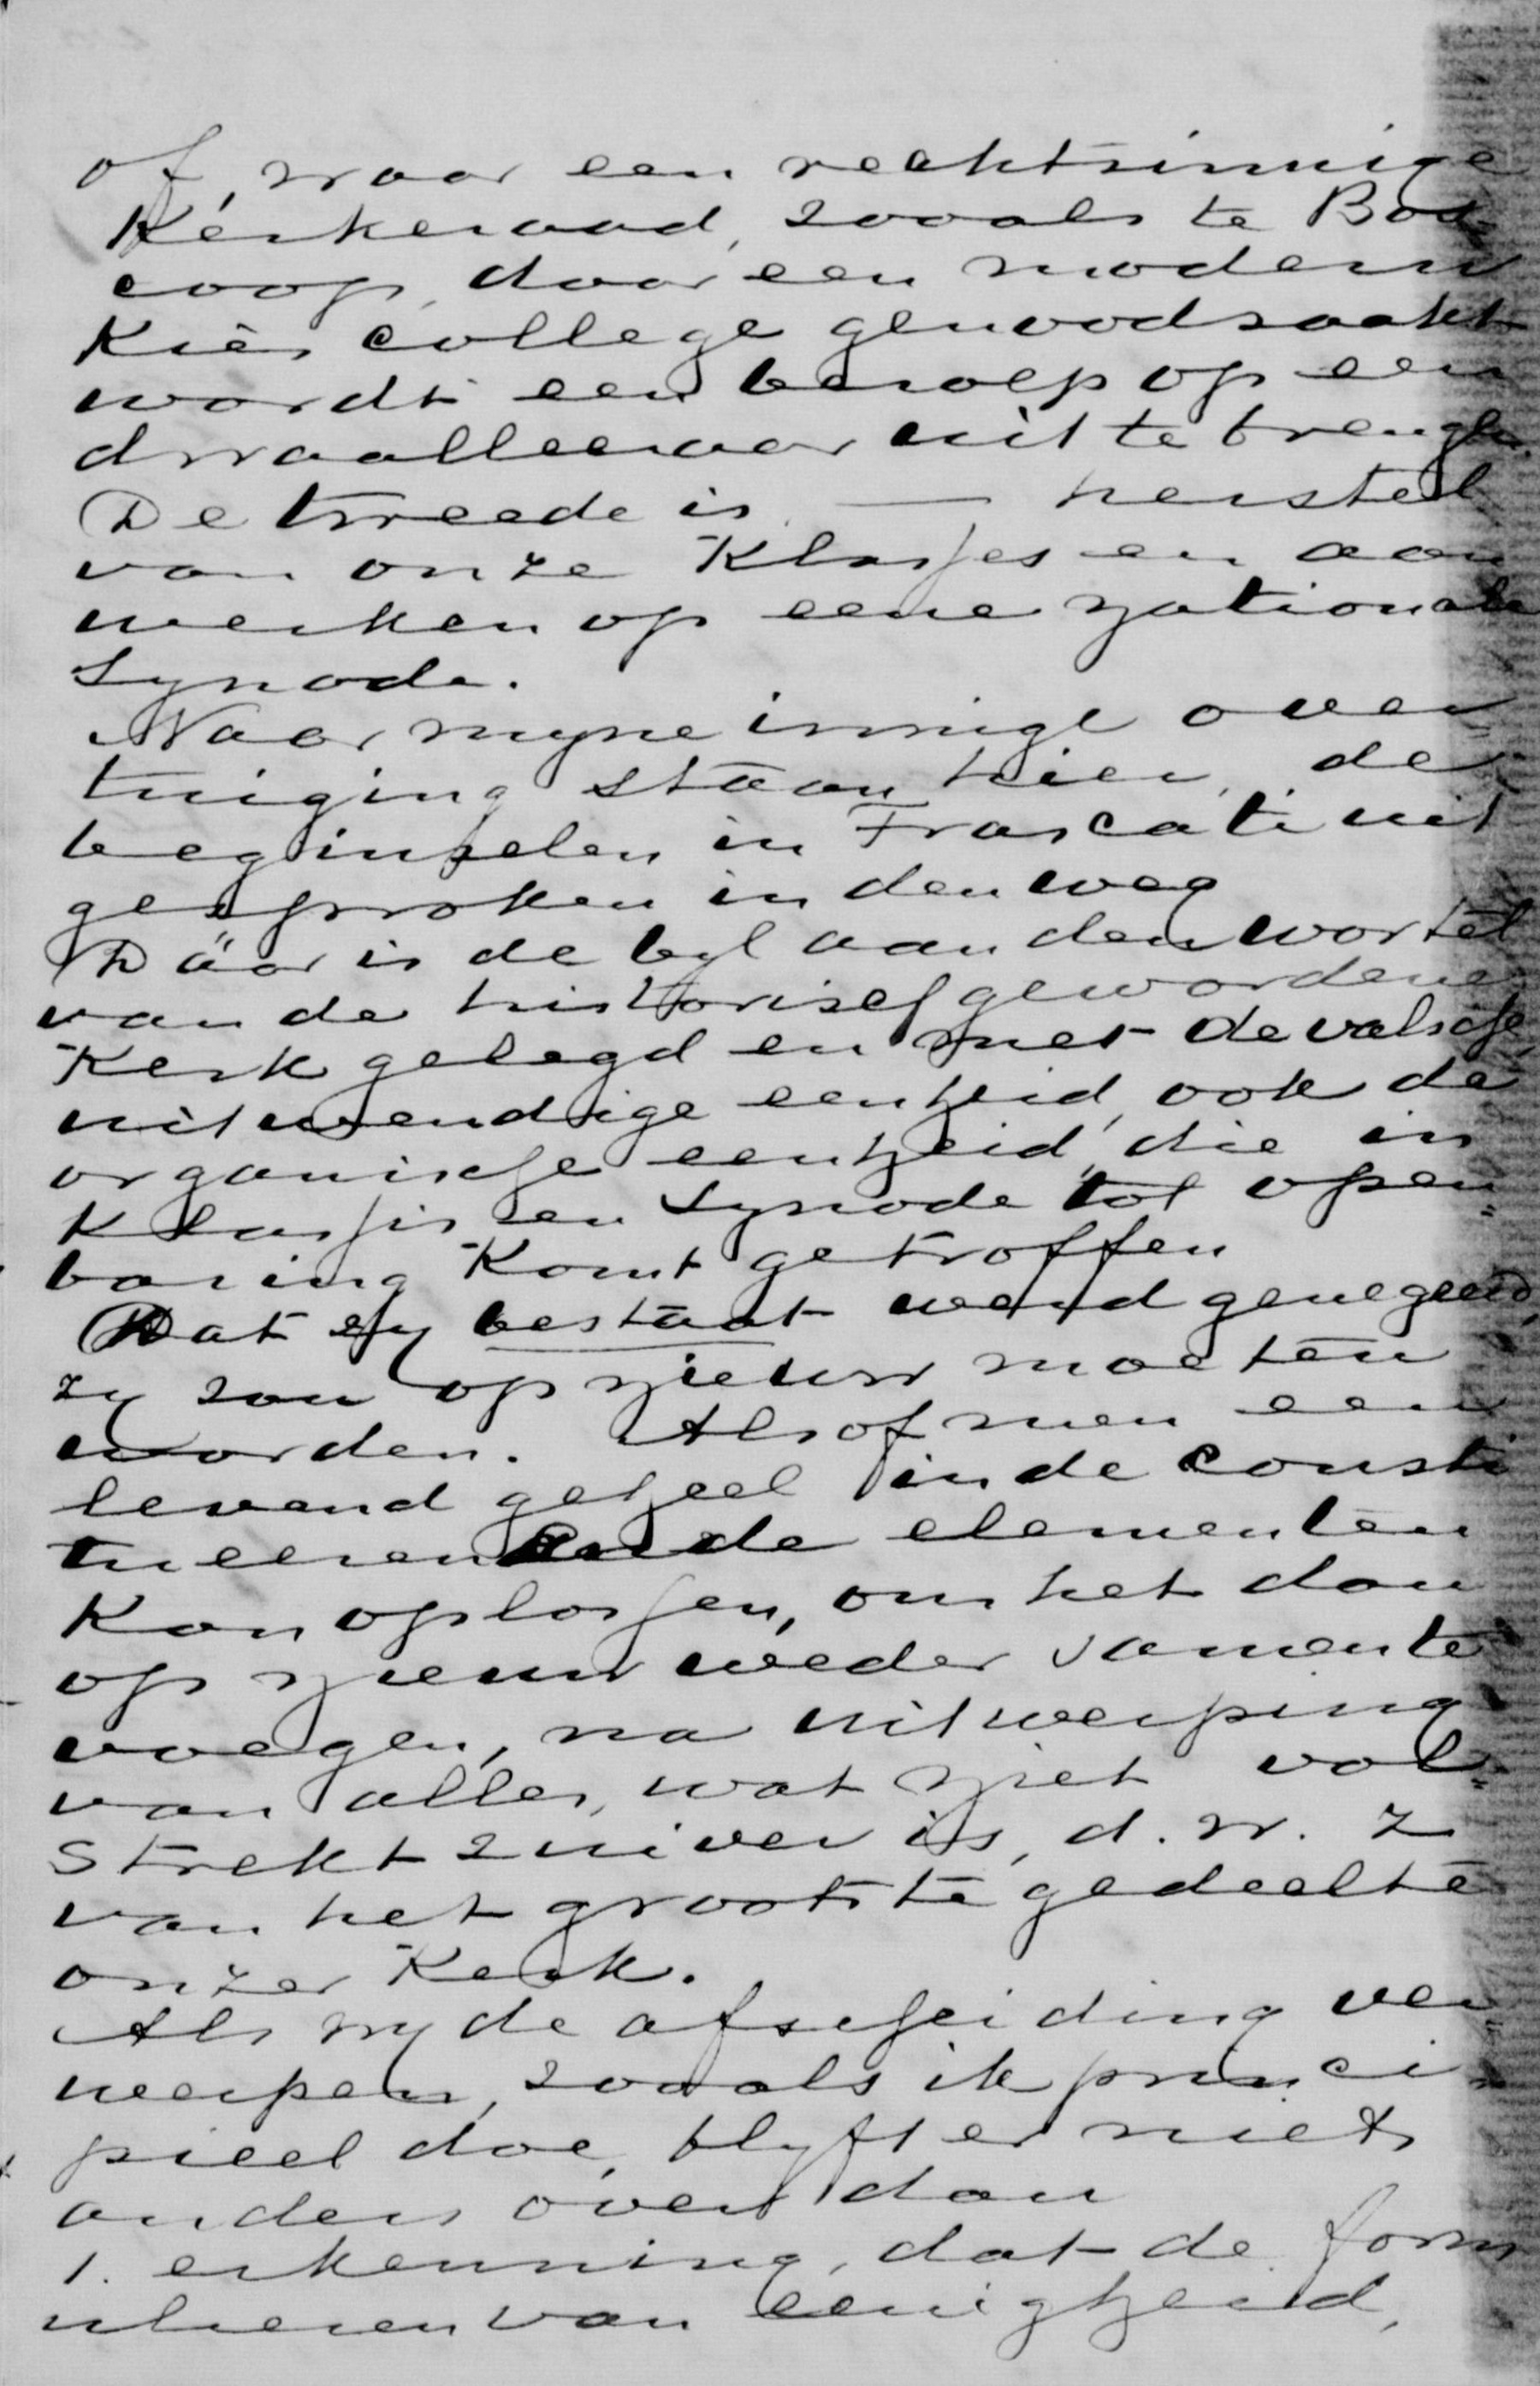 of, waar een rechtzinnige
Kerkeraad, zooals te Bos=
coop, door een modern
Kies college genoodzaakt
wordt een beroep op een
dwaalleeraar uit te brengen.
De tweede is — herstel
van onze Klasses en aan
werken op eene nationale
Synode.
Naar myne innige over
tuiging staan hier, de
beginselen in Frascati uit
gesproken in den weg
Dáár is de byl aan den wortel
van de historisch gewordene
Kerk gelegd en met de valsche,
uitwendige eenheid, ook de
organische eenheid, die in
Klassis en Synode tot open=
baring komt getroffen
Dat zy bestaat werd genegeerd,
zy zou op nieuw moeten
worden. Alsof men een
levend geheel in de consti
tueerende elementen
kon oplossen, om het dan
op nieuw weder samen te
voegen, na uitwerping
van alles, wat niet vol=
strekt zuiver is, d. w. z
van het grootste gedeelte
onzer Kerk.
Als wy de afscheiding ver=
werpen, zooals ik princi=
pieel doe, blyft er niets
anders over dan
1. erkenning, dat de form
ulieren van eenigheid,